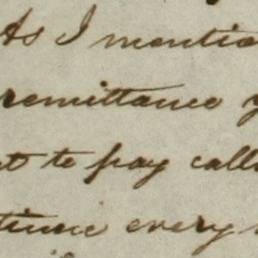 As I mentio
remittance y
t to pay calls
tinue every